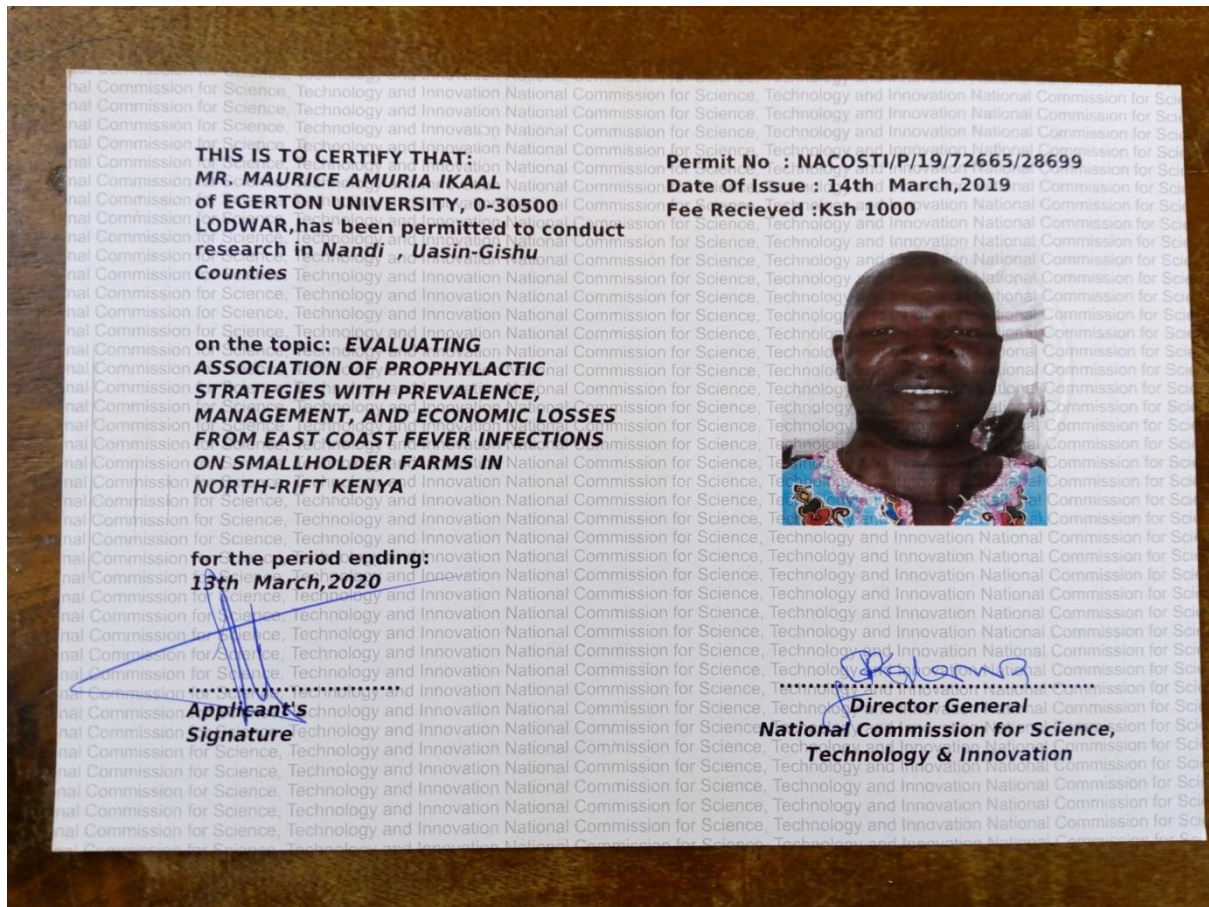 THIS IS TO CERTIFY THAT:
MR. MAURICE AMURIA IKAAL
of EGERTON UNIVERSITY, 0-30500
LODWAR,has been permitted to conduct
research in Nandi , Uasin-Gishu
Counties
on the topic: EVALUATING
ASSOCIATION OF PROPHYLACTIC
STRATEGIES WITH PREVALENCE,
MANAGEMENT, AND ECONOMIC LOSSES
FROM EAST COAST FEVER INFECTIONS
ON SMALLHOLDER FARMS IN
NORTH-RIFT KENYA
for the period ending:
13th March,2020
Applicant's
Signature
Permit No : NACOSTI/P/19/72665/28699
Date Of Issue : 14th March,2019
Fee Recieved :Ksh 1000
Director General
National Commission for Science,
Technology & Innovation